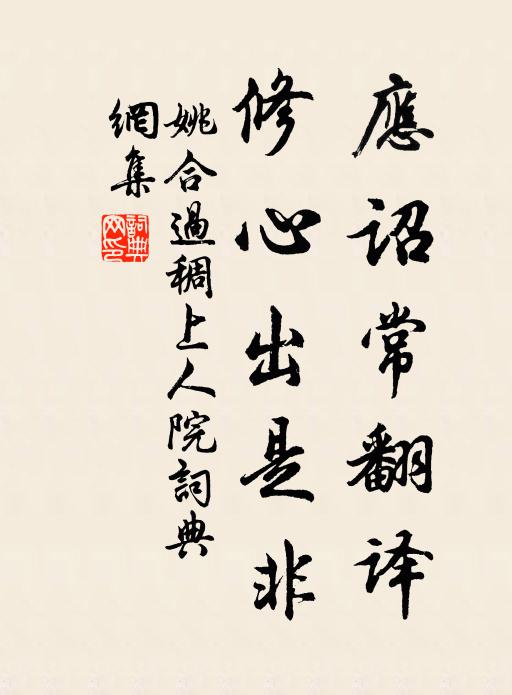 應詔常翻译
修心出是非
姚合過稠上人院詞典
網集
詞典網印